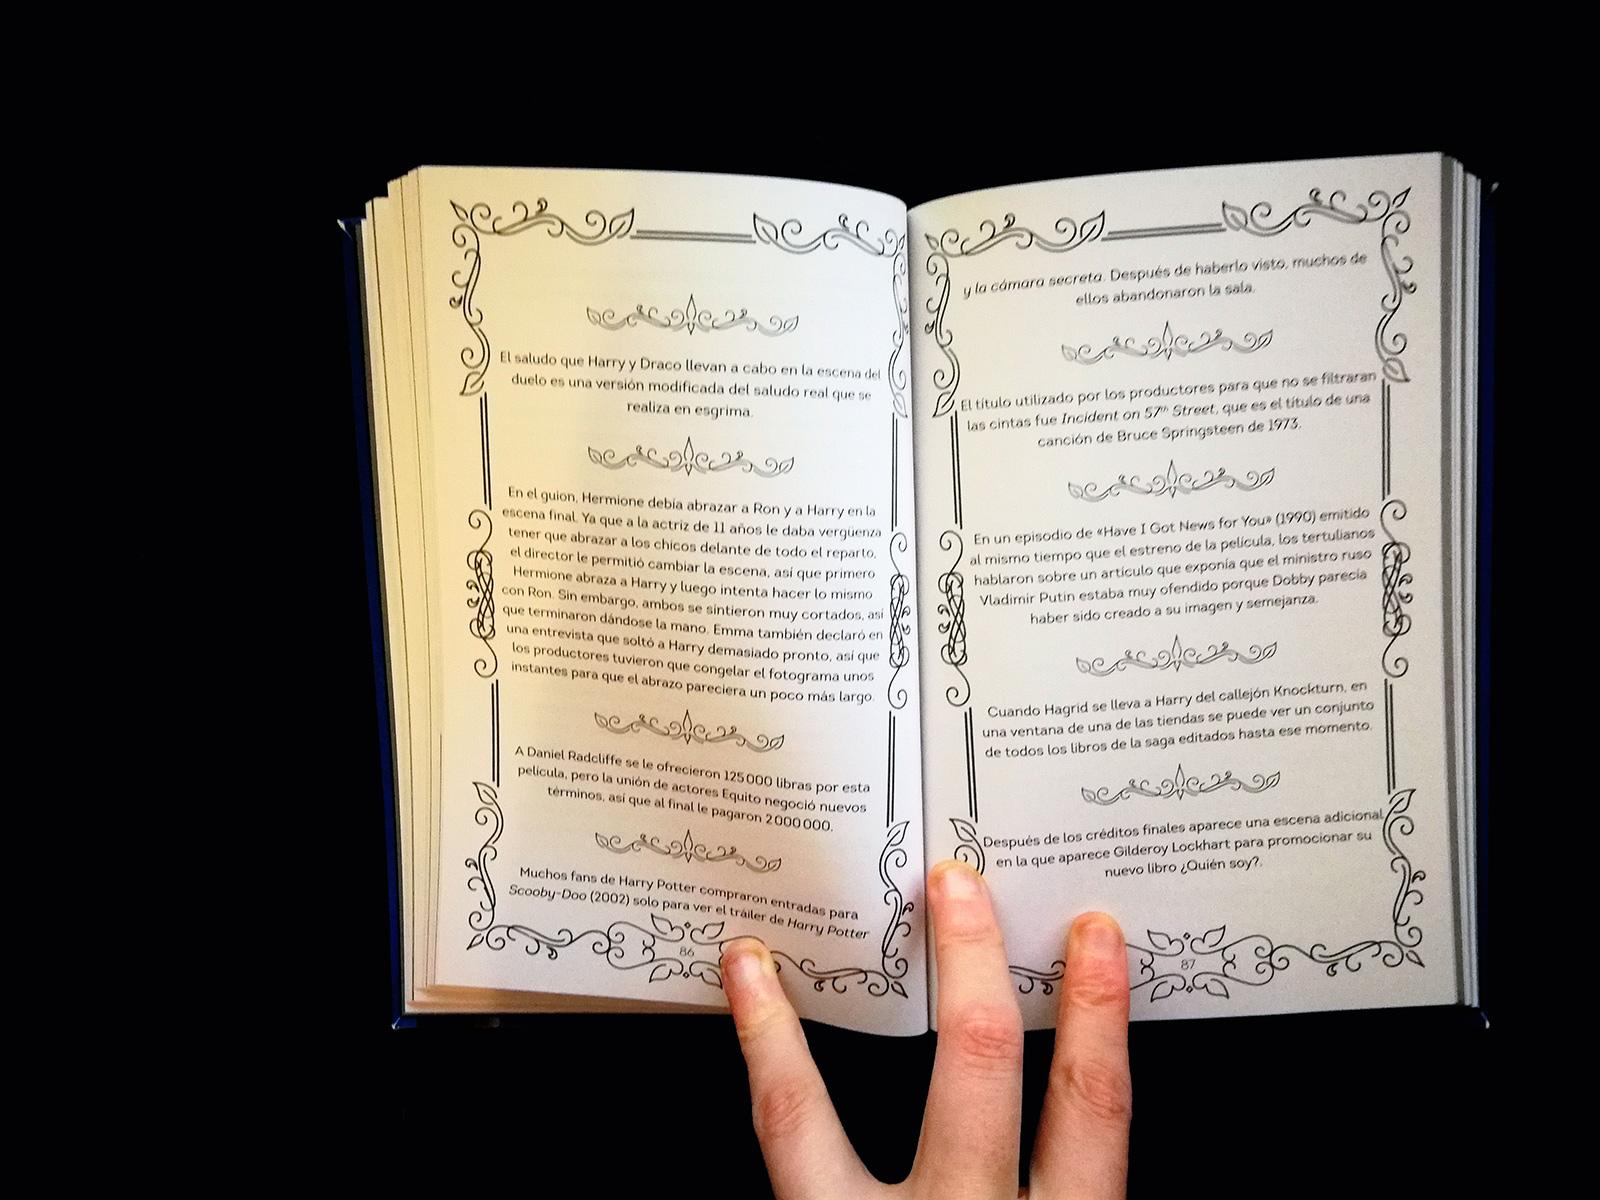 El saludo que Harry y Draco llevan a cabo en la escena del
duelo es una versión modificada del saludo real que se
realiza en esgrima.
En el guion, Hermione debía abrazar a Ron y a Harry en la
escena final. Ya que a la actriz de 11 años le daba vergüenza
tener que abrazar a los chicos delante de todo el reparto,
el director le permitió cambiar la escena, así que primero
Hermione abraza a Harry y luego intenta hacer lo mismo
con Ron. Sin embargo, ambos se sintieron muy cortados, así
que terminaron dándose la mano. Emma también declaró en
una entrevista que soltó a Harry demasiado pronto, así que
los productores tuvieron que congelar el fotograma unos
instantes para que el abrazo pareciera un poco más largo.
A Daniel Radcliffe se le ofrecieron 125 000 libras por esta
película, pero la unión de actores Equito negoció nuevos
términos, así que al final le pagaron 2 000 000.
Muchos fans de Harry Potter compraron entradas para
Scooby-Doo (2002) solo para ver el tráiler de Harry Potter
86
y la cámara secreta. Después de haberlo visto, muchos de
ellos abandonaron la sala.
El título utilizado por los productores para que no se filtraran
las cintas fue Incident on 57th Street, que es el título de una
canción de Bruce Springsteen de 1973.
En un episodio de «Have I Got News for You» (1990) emitido
al mismo tiempo que el estreno de la película, los tertulianos
hablaron sobre un artículo que exponía que el ministro ruso
Vladimir Putin estaba muy ofendido porque Dobby parecía
haber sido creado a su imagen y semejanza.
Cuando Hagrid se lleva a Harry del callejón Knockturn, en
una ventana de una de las tiendas se puede ver un conjunto
de todos los libros de la saga editados hasta ese momento.
Después de los créditos finales aparece una escena adicional
en la que aparece Gilderoy Lockhart para promocionar su
nuevo libro ¿Quién soy?.
87